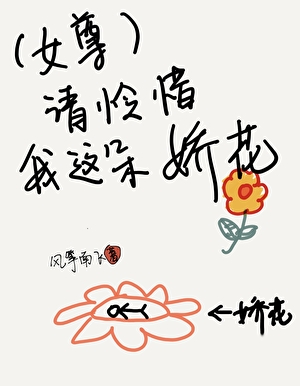 (女尊)
请怜惜
我这朵娇花
风筝南飞
←娇花